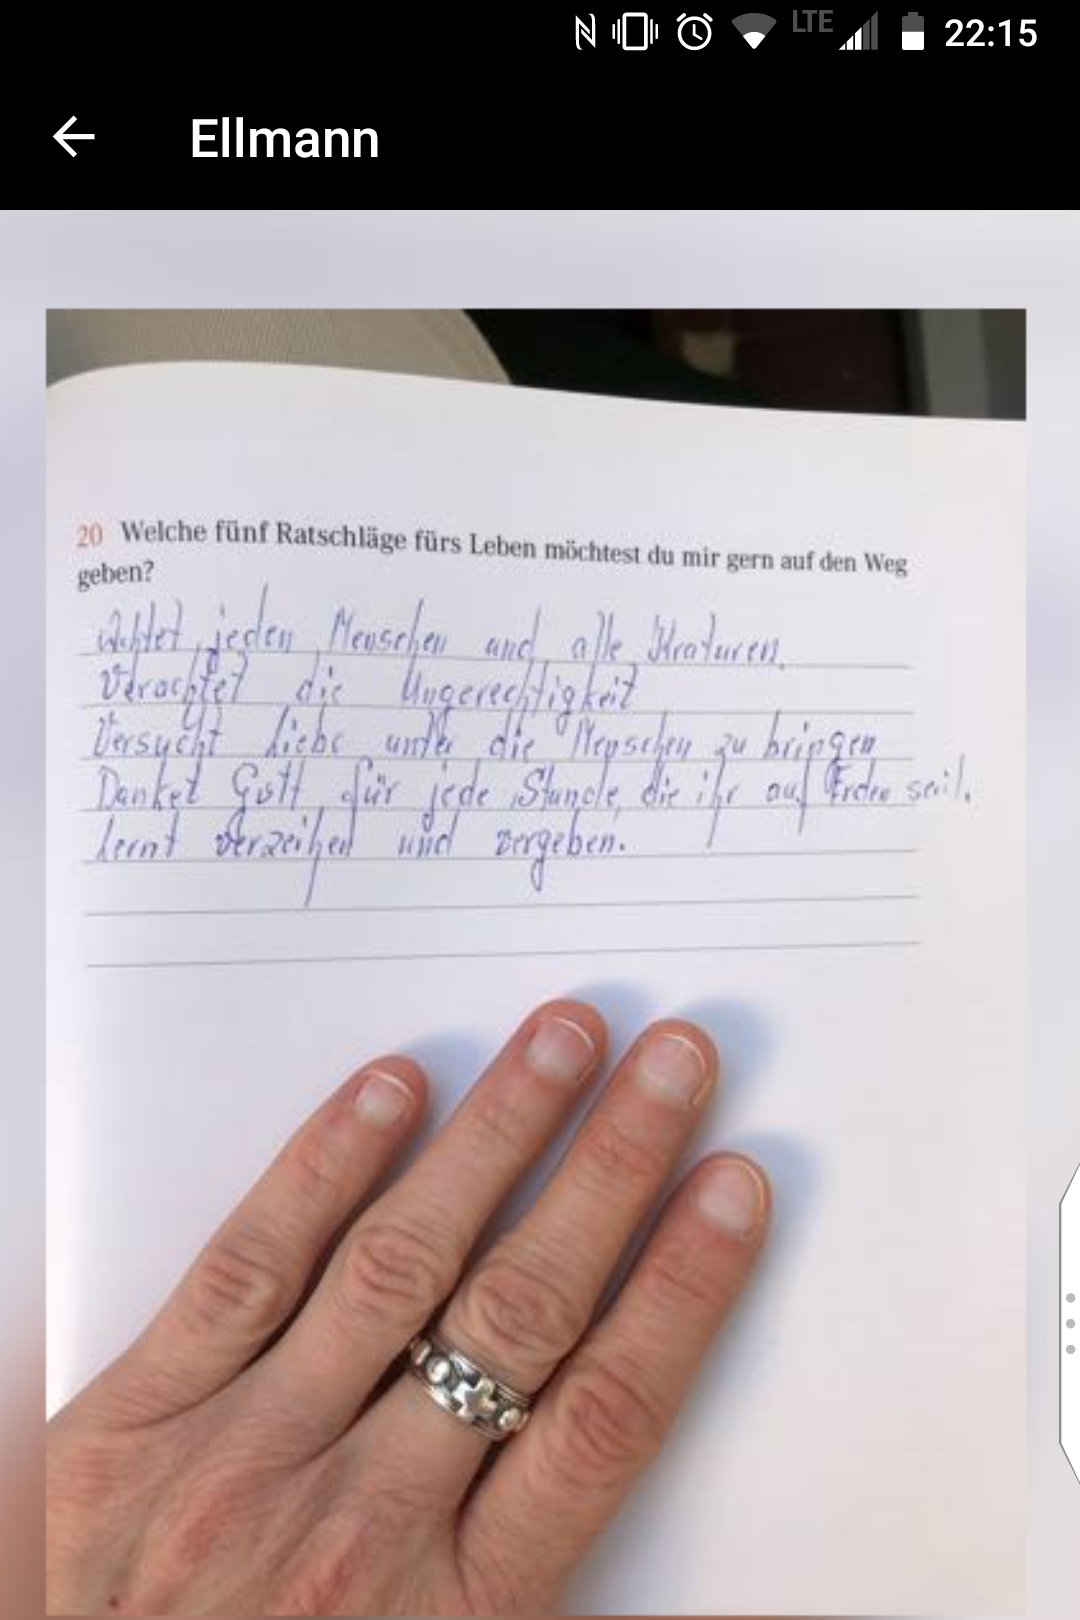 LTE 22:15
Ellmann
20 Welche fünf Ratschläge fürs Leben möchtest du mir gern auf den Weg
geben?
Achtet jeden Menschen und alle Kraturen.
Verachtet die Ungerechtigkeit
Versucht Liebe unter die Menschen zu bringen
Danket Gott für jede Stunde, die ihr auf Erden seid.
Lernt verzeihen und vergeben.